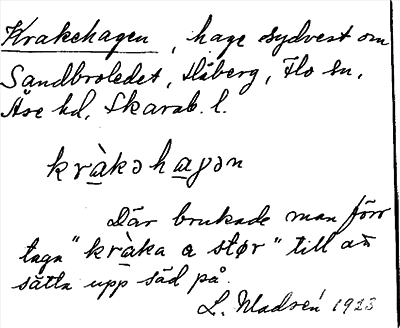 Krakehagen, hage sydvest om
Sandbroledet, Håberg, Flo sn,
Åse hd, Skarab. l.
kràkəhaγən
Där brukade man förr
taga "kràka a stør" till att
sätta upp säd på.
L. Madsén 1923